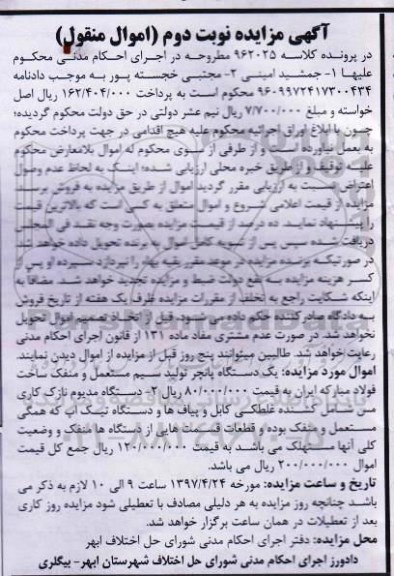 آگهی مزایده نوبت دوم (اموال منقول)
در پرونده کلاسه ۹۶۲۰۲۵ مطروحه در اجرای احکام مدنی محکوم
علیها ۱- جمشید امینی ۲- مجتبی خجسته پور به موجب دادنامه
۹۶۰۹۹۷۲۴۱۷۳۰۰۴۳۴ محکوم است به پرداخت ۱۶۲/۴۰۴/۰۰۰ ریال اصل
خواسته و مبلغ ۷/۷۰۰/۰۰۰ ریال نیم عشر دولتی در حق دولت محکوم گردیده؛
چون با ابلاغ اوراق اجرائیه محکوم علیه هیچ اقدامی در جهت پرداخت محکوم
به بعمل نیاورده است و از طرفی از سوی محکوم له اموال بلامعارض محکوم
علیه توقیف و از طریق خبره محلی ارزیابی شده؛ اینک به لحاظ عدم وصول
اعتراض نسبت به ارزیابی مقرر گردید اموال از طریق مزایده به فروش برسد.
مزایده از قیمت اعلامی شروع و اموال متعلق به کسی است که بالاترین قیمت
را پیشنهاد نماید. ده درصد از قیمت مزایده بصورت وجه نقد فی المجلس
دریافت شده سپس پس از تسویه کامل اموال به برنده تحویل داده خواهد شد.
در صورتیکه برنده مزایده در موعد مقرر بقیه بهاء را نپردازد سپرده او پس از
کسر هزینه مزایده به نفع دولت ضبط و مزایده تجدید خواهد شد. مضافا به
اینکه شکایت راجع به تخلف از مقررات مزایده ظرف یک هفته از تاریخ فروش
به دادگاه صادر کننده حکم داده می شود. قبل از اتخاذ تصمیم اموال تحویل
نخواهد شد. در صورت عدم مشتری مفاد ماده ۱۳۱ از قانون اجرای احکام مدنی
رعایت خواهد شد. طالبین میتوانند پنج روز قبل از مزایده از اموال دیدن نمایند.
اموال مورد مزایده: یک دستگاه پانچر تولید سیم مستعمل و منفک ساخت
فولاد مبارکه ایران به قیمت ۸۰/۰۰۰/۰۰۰ ریال ۲- دستگاه مدیوم نازک کاری
مس شامل کشنده غلطکی کابل و پیاف ها و دستگاه تیک آپ که همگی
مستعمل و منفک بوده و قطعات قسمت هایی از دستگاه ها منفک و وضعیت
کلی آنها مستهلک می باشد به قیمت ۱۲۰/۰۰۰/۰۰۰ ریال جمع کل قیمت
اموال ۲۰۰/۰۰۰/۰۰۰ ریال می باشد.
تاریخ و ساعت مزایده: مورخه ۱۳۹۷/۴/۲۴ ساعت ۹ الی ۱۰ لازم به ذکر می
باشد چنانچه روز مزایده به هر دلیلی مصادف با تعطیلی شود مزایده روز کاری
بعد از تعطیلات در همان ساعت برگزار خواهد شد.
محل مزایده: دفتر اجرای احکام مدنی شورای حل اختلاف ابهر
دادورز اجرای احکام مدنی شورای حل اختلاف شهرستان ابهر- بیگلری